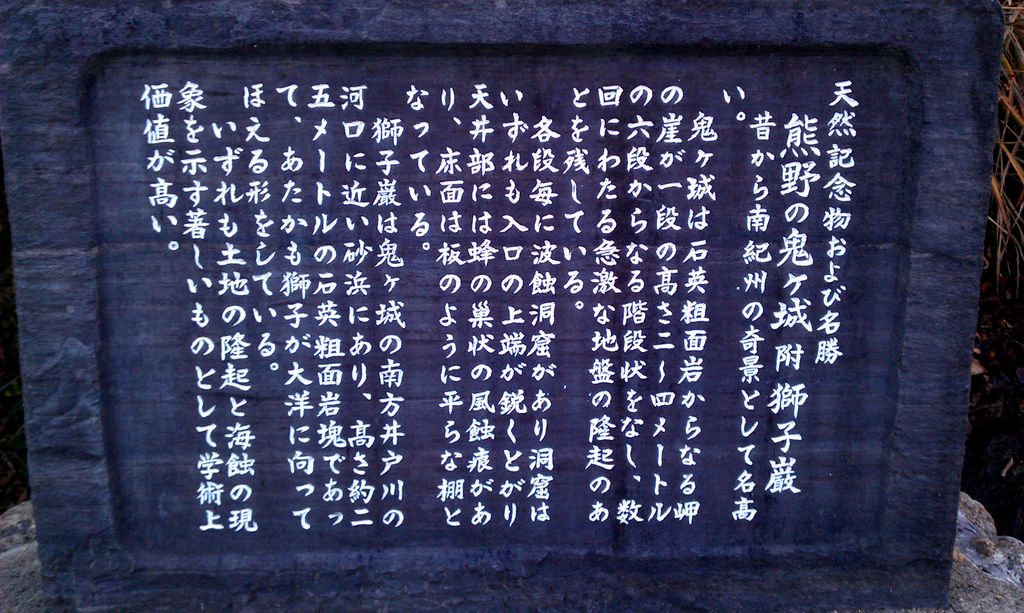 天然記念物および名勝
熊野の鬼ヶ城 附 獅子巖
昔から南紀州の奇景として名高
い。
鬼ヶ城は石英粗面岩からなる岬
の崖が一段の高さ二～四メートル
の六段からなる階段状をなし、数
回にわたる急激な地盤の隆起のあ
とを残している。
各段毎に波蝕洞窟があり洞窟は
いずれも入口の上端が鋭くとがり
天井部には蜂の巣状の風蝕痕があ
り、床面は板のように平らな棚と
なっている。
獅子巌は鬼ヶ城の南方井戸川の
河口に近い砂浜にあり、高さ約二
五メートルの石英粗面岩塊であっ
て、あたかも獅子が大洋に向って
ほえる形をしている。
いずれも土地の隆起と海蝕の現
象を示す著しいものとして学術上
価値が高い。